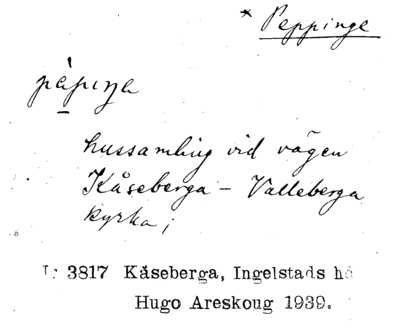 * Peppinge
pápiŋa
hussamling vid vägen
Kåseberga - Valleberga
kyrka;
L: 3817 Kåseberga, Ingelstads hd
Hugo Areskoug 1939.